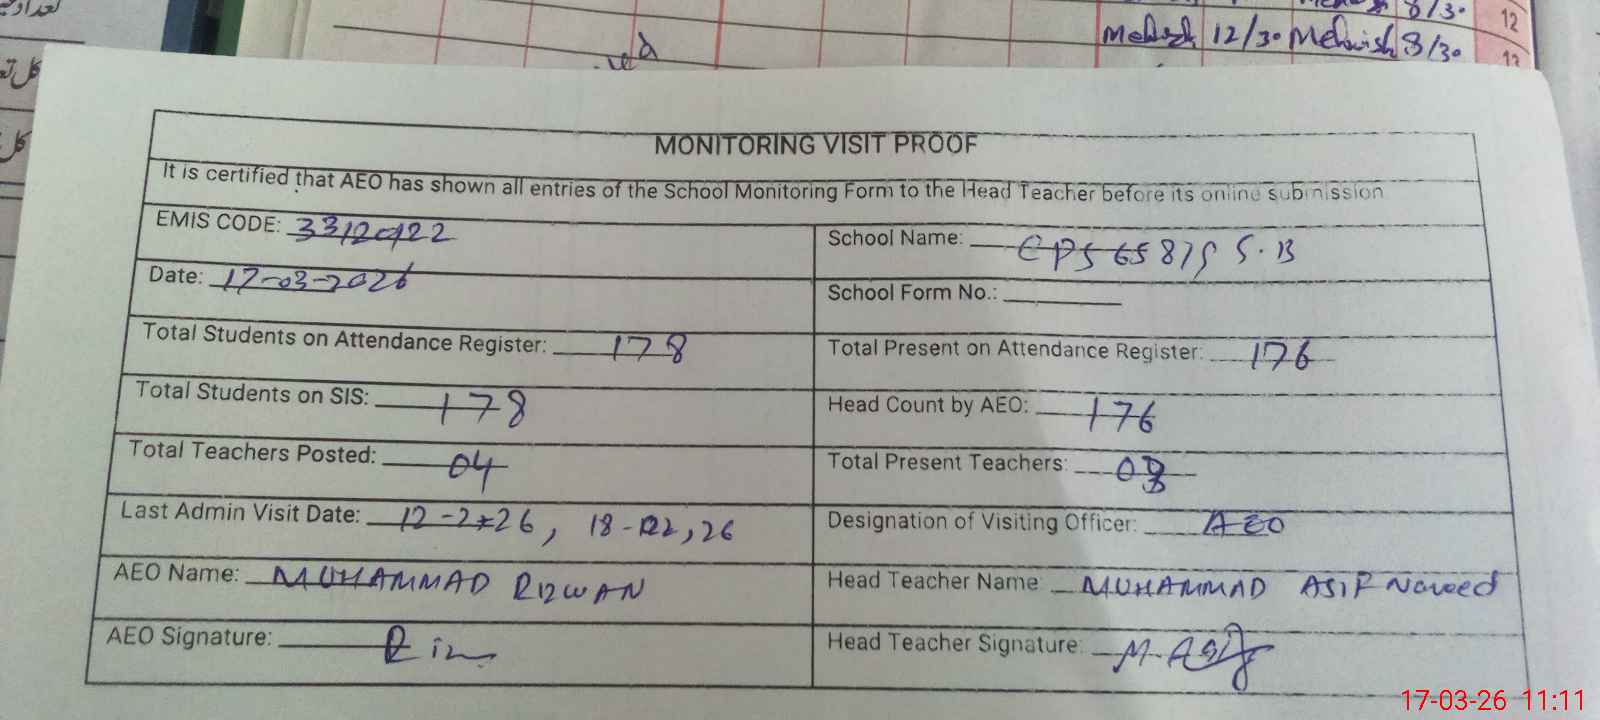 تعداد
8/30
12
Mehwish 12/30 Mehwish 8/30
13
کل
کل
MONITORING VISIT PROOF
It is certified that AEO has shown all entries of the School Monitoring Form to the Head Teacher before its online submission
EMIS CODE: 33120122
School Name: GPS 658/9 S.B
Date: 17-03-2026
School Form No.:
Total Students on Attendance Register: 178
Total Present on Attendance Register: 176
Total Students on SIS: 178
Head Count by AEO: 176
Total Teachers Posted: 04
Total Present Teachers: 03
Last Admin Visit Date: 12-2-26, 18-02,26
Designation of Visiting Officer: AEO
AEO Name: MUHAMMAD RIZWAN
Head Teacher Name MUHAMMAD ASIF Naveed
AEO Signature:
Head Teacher Signature: M.Asif
17-03-26 11:11